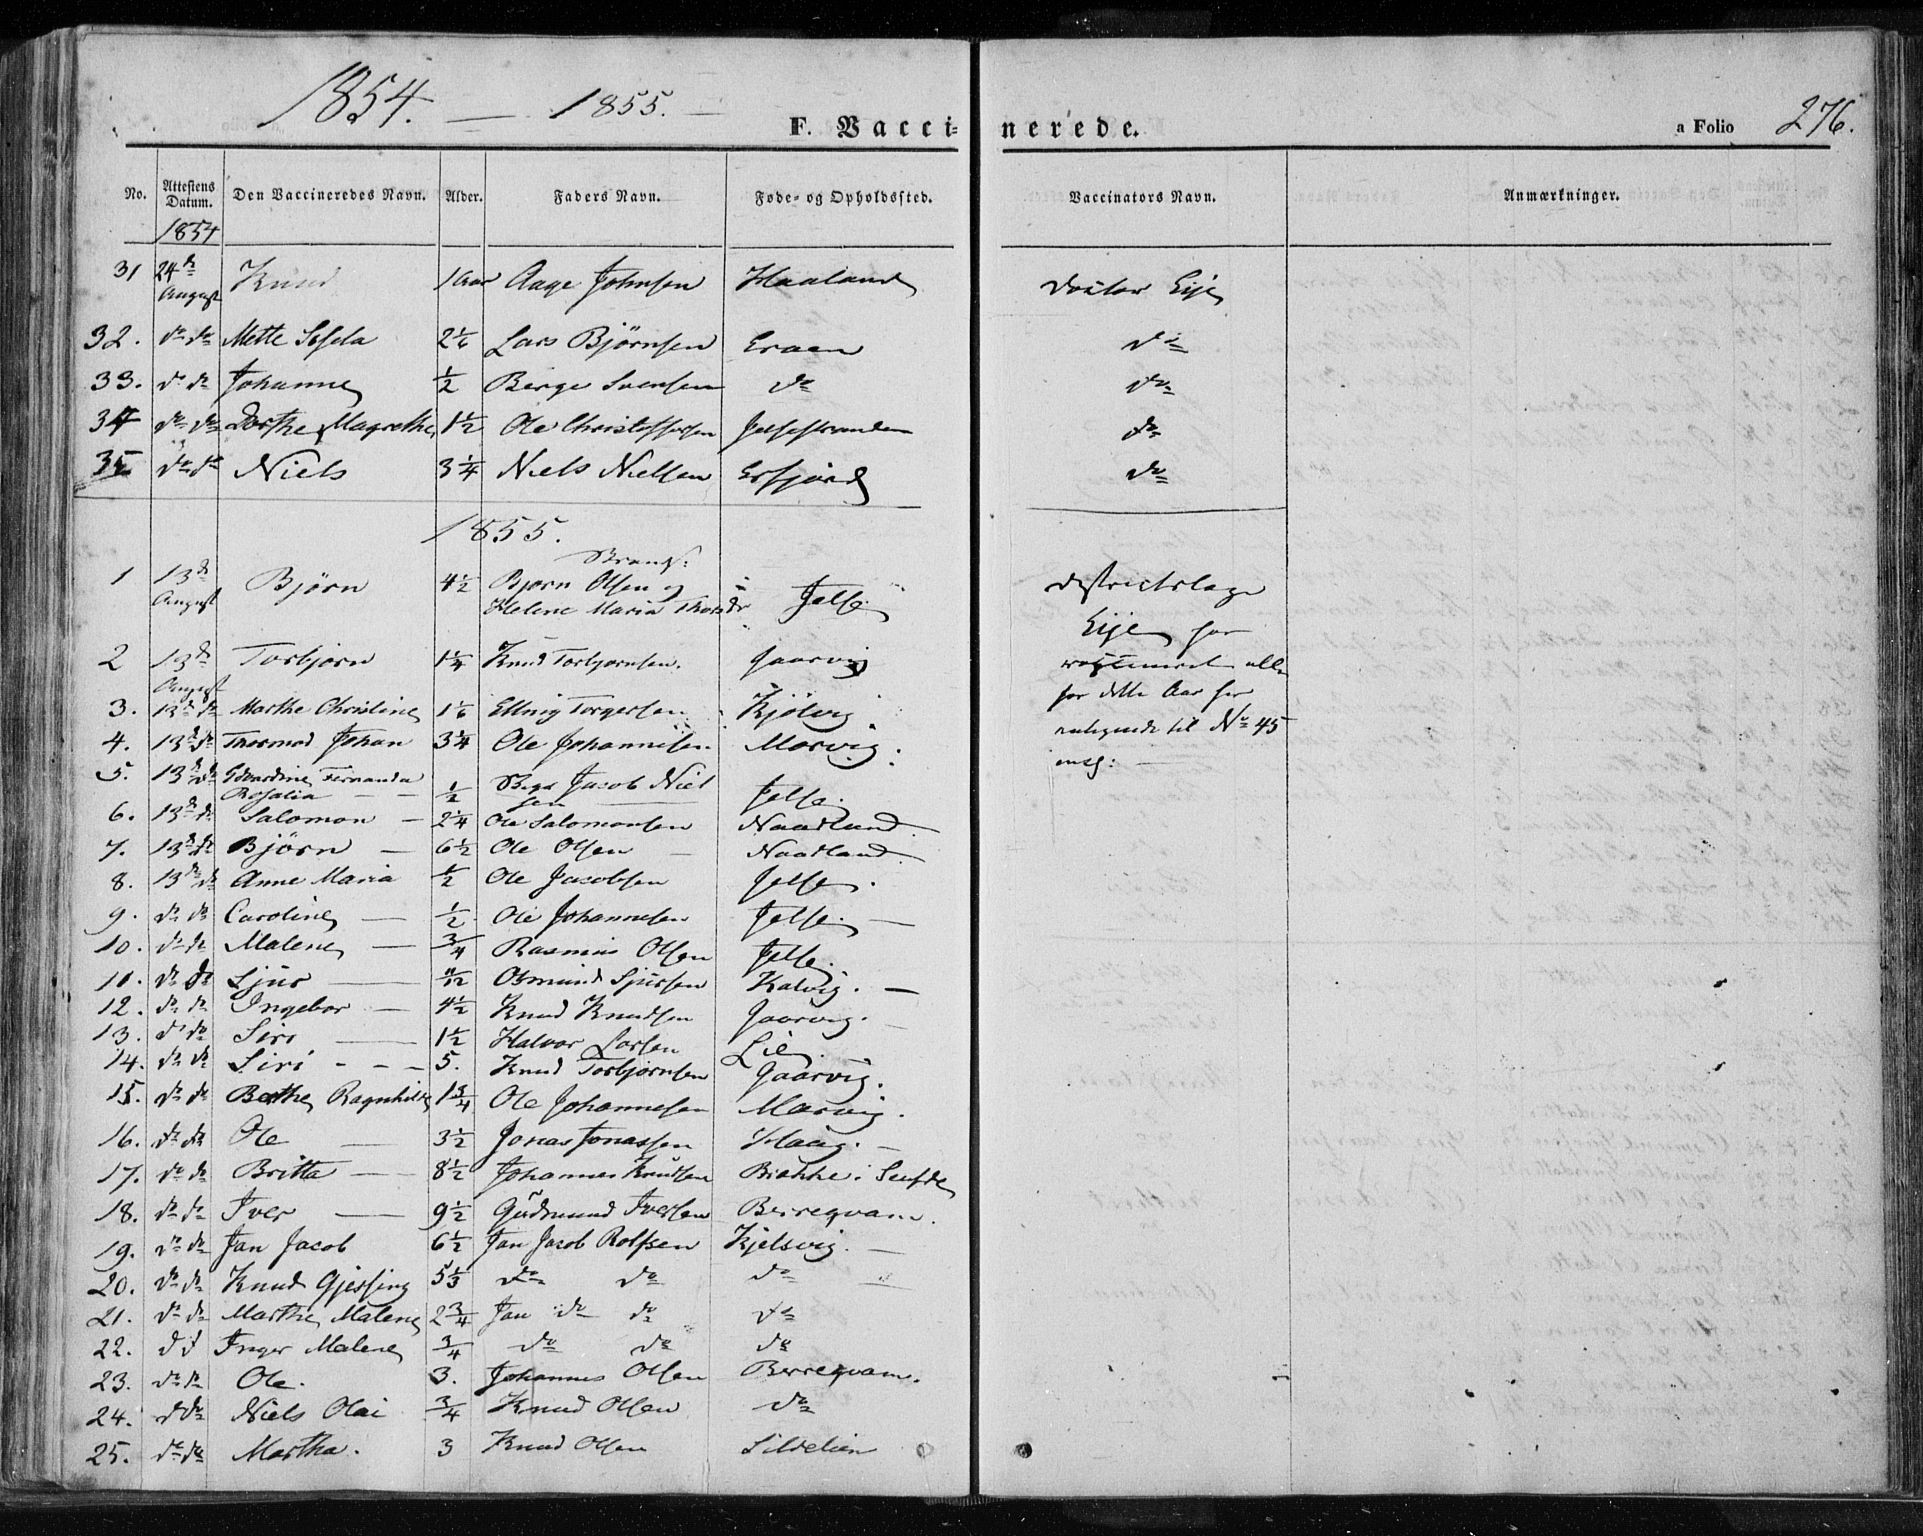 1854. — 1855. —
F. Vaccinerede.
a Folio 276.
No. Attestens Datum. Den Vaccineredes Navn. Alder. Faders Navn. Føde- og Opholdssted. Vaccinators Navn. Anmærkninger.
1854
31 24de August Knud 1 Aar Aage Johnsen Haaland Doctor Eije
32. do do Mette 2 1/6 Lars Bjørnsen Eraen do
33. do do Johanne 1/2 Berge Svensen do do
34 do do Dorthe Magrethe 1 1/2 Ole Christoffersen Jelsestranden do
35 do do Niels 3 1/4 Niels Nielsen Erfjord do
1855.
1 13de August Bjørn 4 1/2 Bjørn Olsen og Helene Maria Jelse Districtslæge
2 13de August Torbjørn 1 1/4 Knud Torbjørnsen. Gaarvig Eije har
vaccineret alle
3. 13de do Marthe Christine 1 1/6 Elling Torgersen Kjølvig for dette Aar her
4. 13de do Thormod Johan 3 1/4 Ole Johannesen Marvig. til No 45
5. 13de do Edvardine Fernanda Rosalia — 1/2 Jacob Nielsen Jelse.
6. 13de do Salomon — 2 1/4 Ole Salomonsen Naadland.
7. 13de do Bjørn — 6 1/2 Ole Olsen — Naadland.
8. 13de do Anne Maria 1/2 Ole Jacobsen Jelse.
9. do do Caroline — 1/2 Ole Johannesen Jelse. —
10. do do Malene — 3/4 Rasmus Olsen Jelse.
11. do do Sjur — 11/12 Osmund Sjursen Kalvig. —
12. do do Ingebor — 4 1/2 Knud Knudsen Gaarvig.
13. do do Siri — 1 1/2 Halvor Larsen Lie
14. do do Siri - - - 5. Knud Torbjørnsen Gaarvig.
15. do do Berthe Ragnhilde 1 3/4 Ole Johannesen Marvig.
16. do do Ole — 3 1/2 Jonas Jonassen Haug. —
17. do do Britta — 8 1/2 Johannes Knudsen Brække i
18. do do Iver — 9 1/2 Gudmund Iversen Berreqvam.
19. do do Jan Jacob 6 1/2 Jan Jacob Rolfsen Kjelsvig. —
20. do do Knud Gjessing 5 1/3 do do do —
21. do do Marthe Malene 2 3/4 Jan do do do
22. d d Inger Malene 3/4 do do do
23. do do Ole. 3. Johannes Olsen Berreqvam.
24. d do Niels Olai 3/4 Knud Olsen do
25. do do Martha. 3 Knud Olsen Sildelien